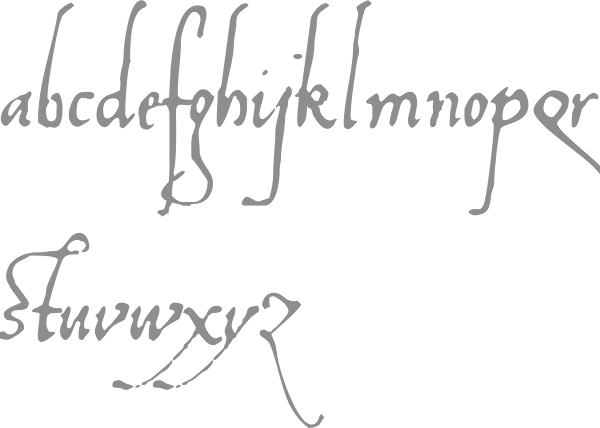 abcdefghijklmnopqr
stuvwxyz